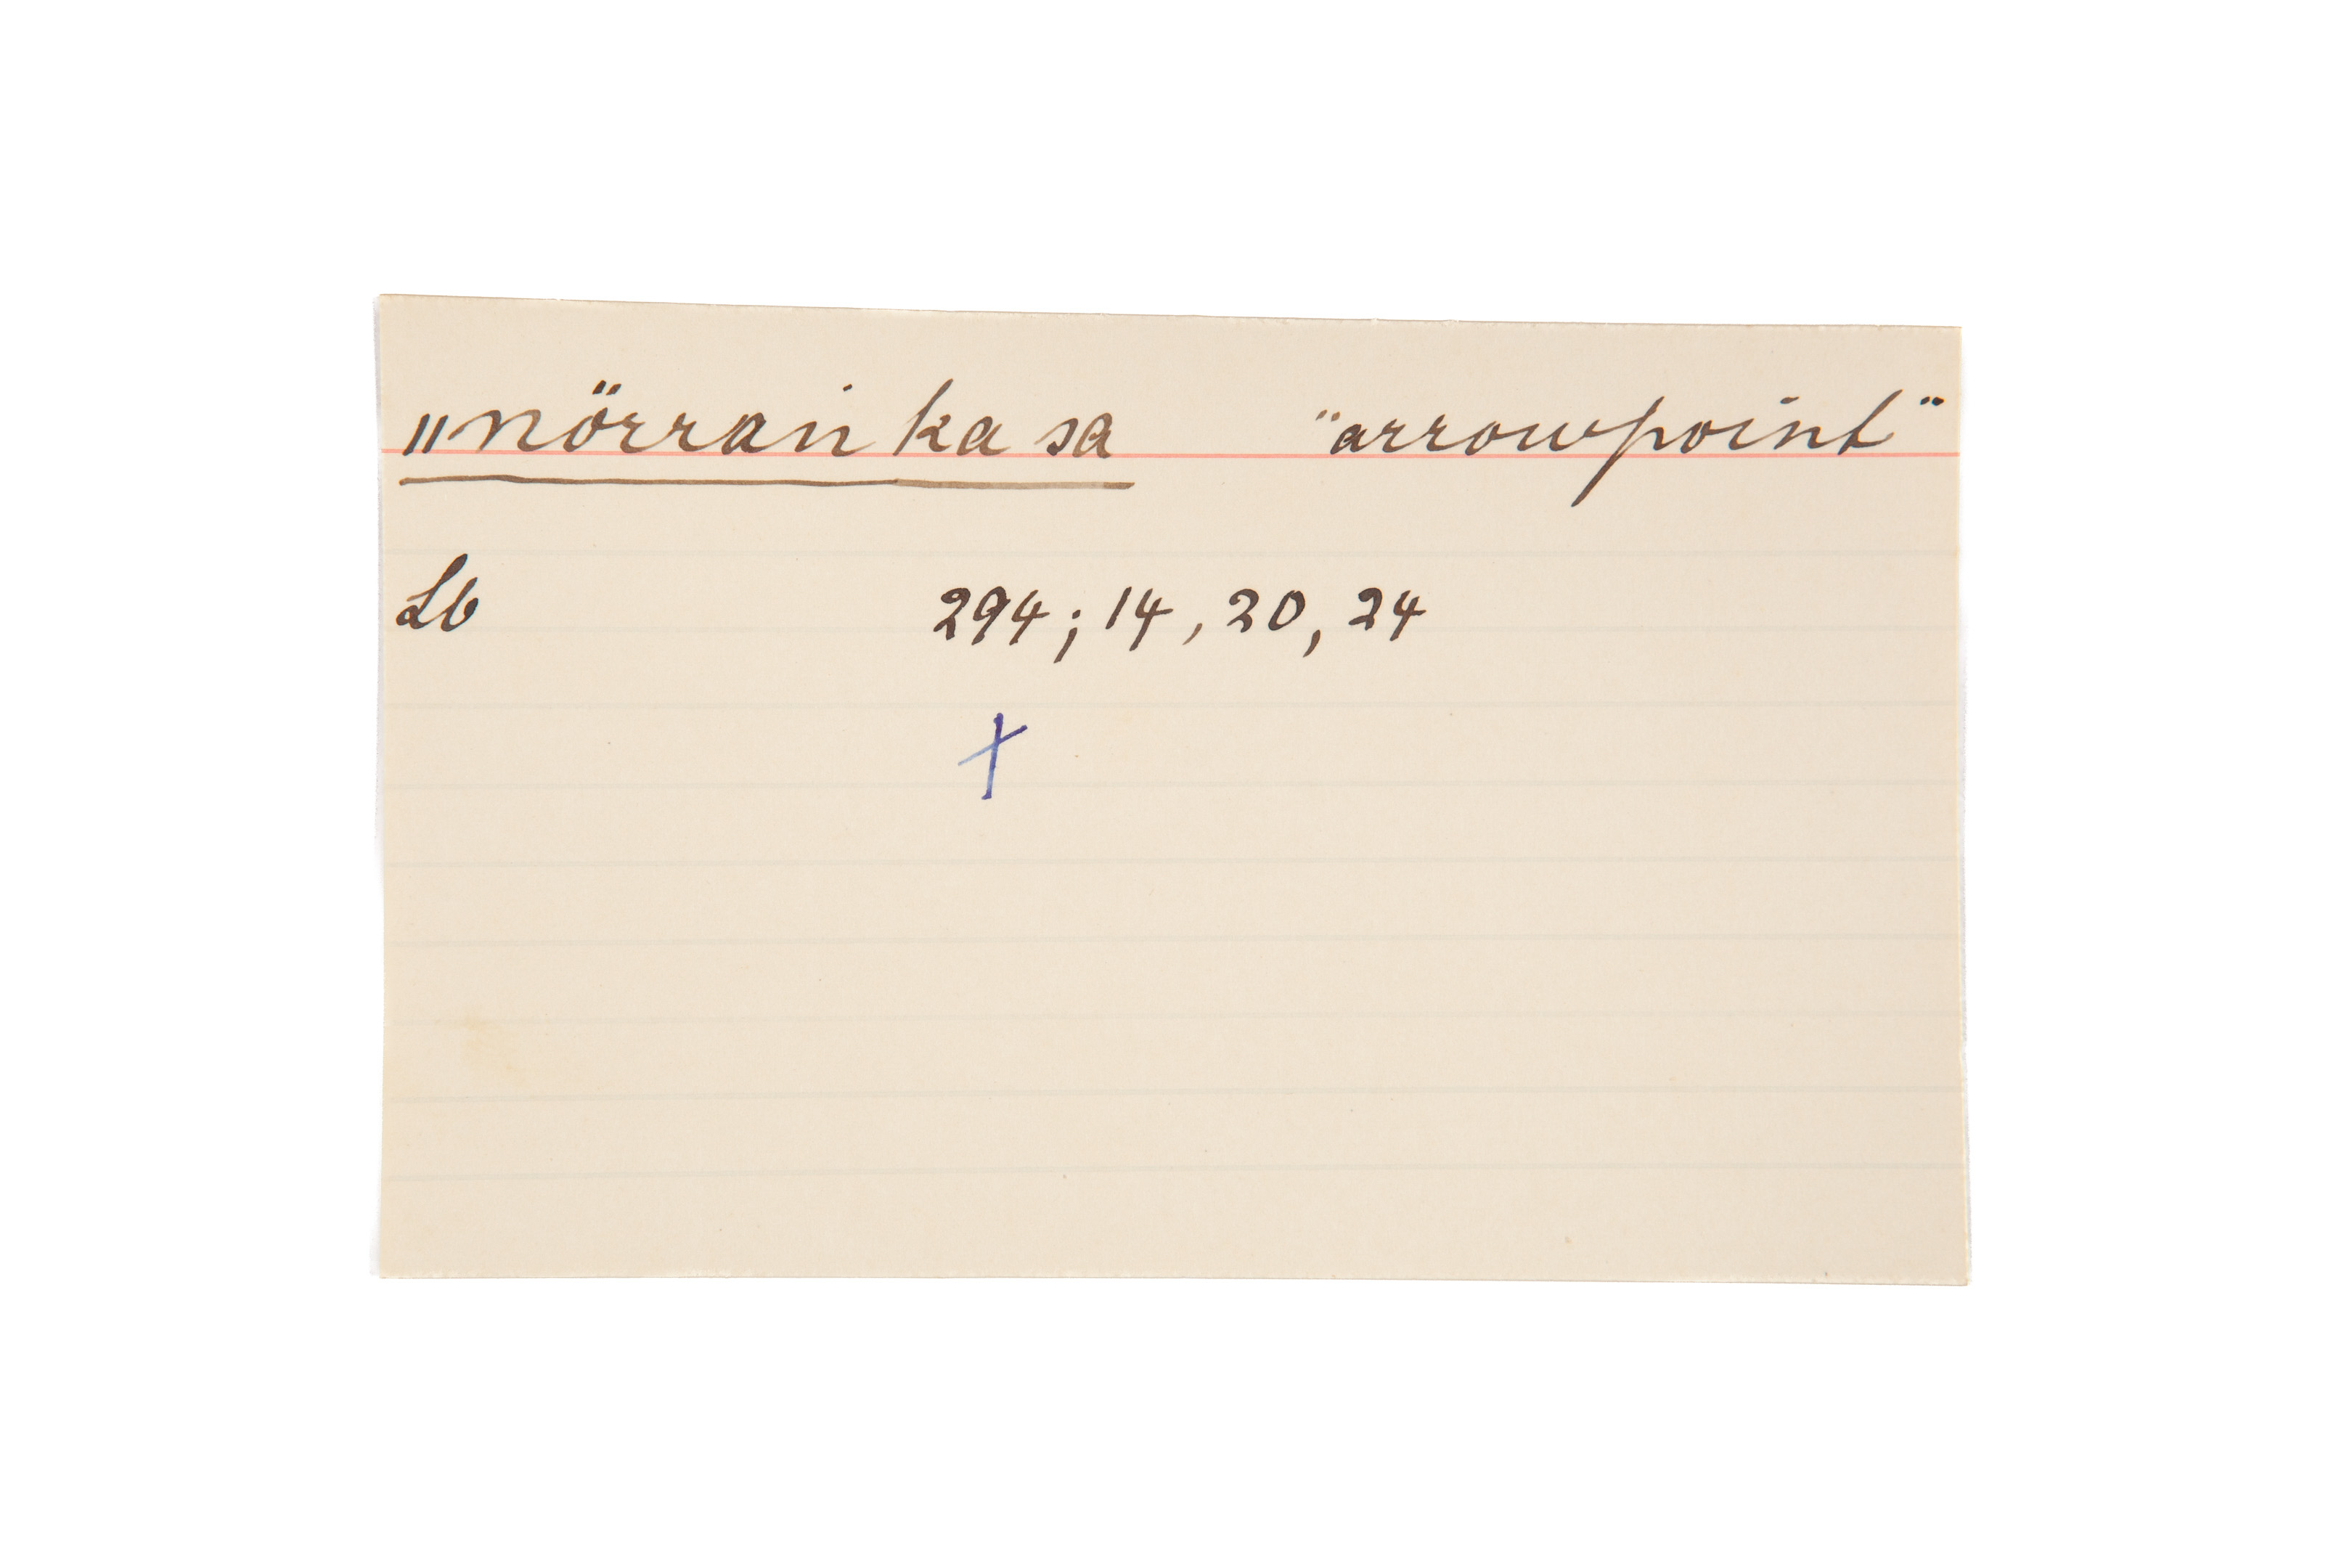 "nörraṅ ka sa "arrowpoint"
Lb 294; 14, 20, 24
+